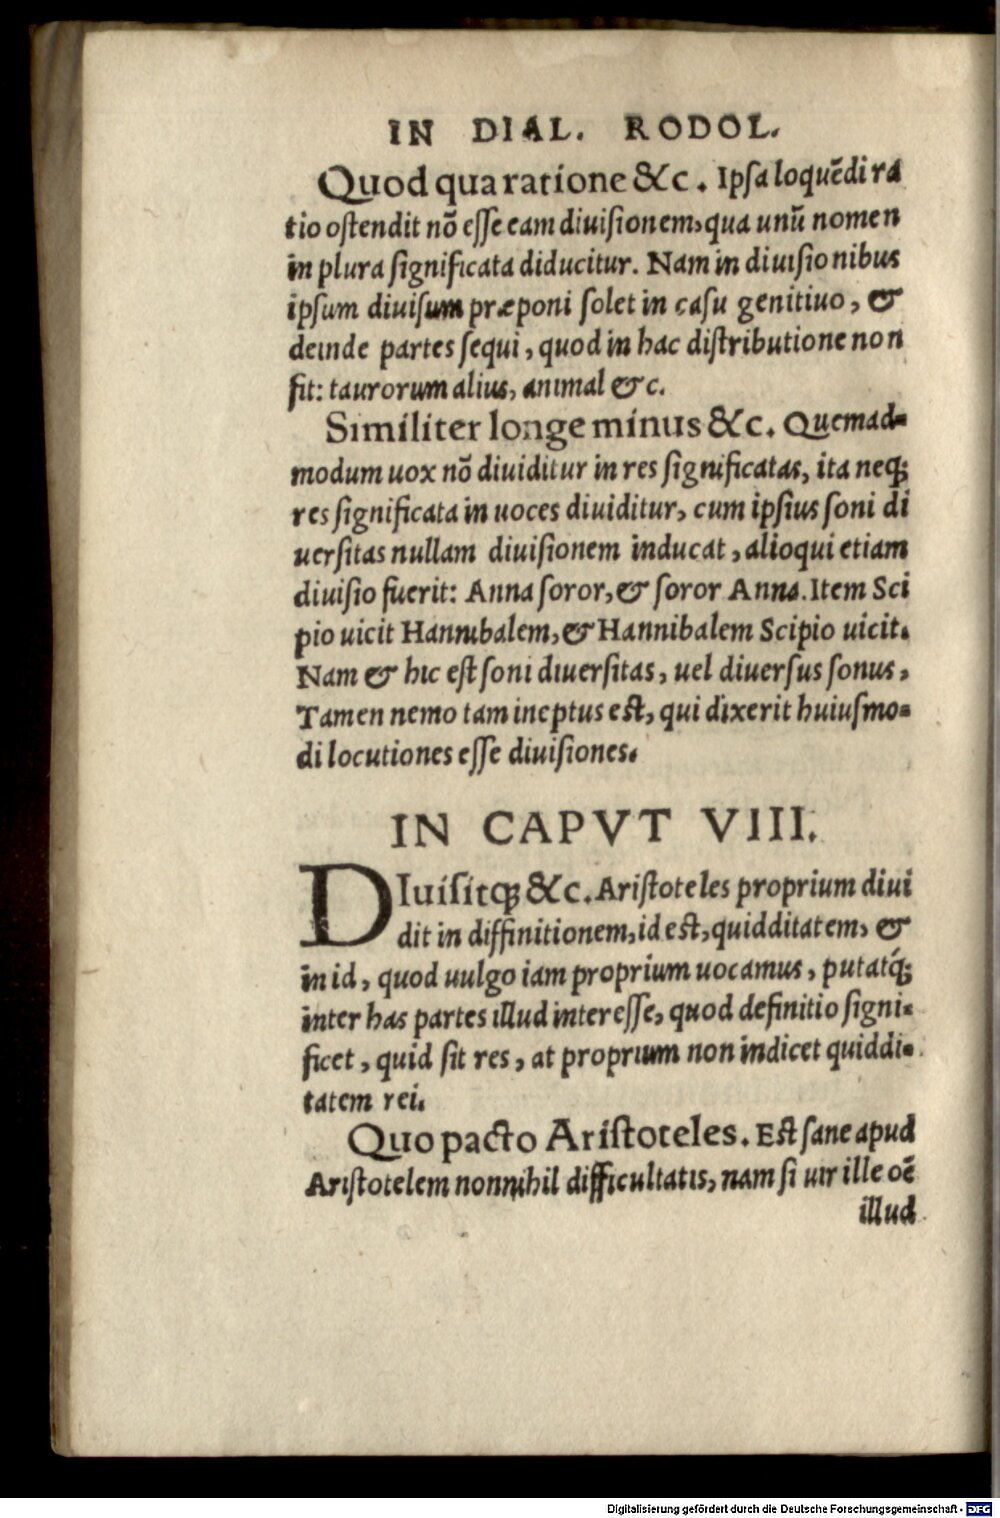 IN DIAL. RODOL.
Quod qua ratione &c. Ipsa loquẽdi ra
tio ostendit nõ esse eam diuisionem, qua unũ nomen
in plura significata diducitur. Nam in diuisionibus
ipsum diuisum præponi solet in casu genitiuo, &
deinde partes sequi, quod in hac distributione non
fit: taurorum alius, animal &c.
Similiter longe minus &c. Quemad-
modum uox nõ diuiditur in res significatas, ita neqꝫ
res significata in uoces diuiditur, cum ipsius soni di
uersitas nullam diuisionem inducat, alioqui etiam
diuisio fuerit: Anna soror, & soror Anna. Item Sci
pio uicit Hannibalem, & Hannibalem Scipio uicit.
Nam & hic est soni diuersitas, uel diuersus sonus,
Tamen nemo tam ineptus est, qui dixerit huiusmo-
di locutiones esse diuisiones.
IN CAPVT VIII.
DIuisitqꝫ &c. Aristoteles proprium diui
dit in diffinitionem, id est, quidditatem, &
in id, quod uulgo iam proprium uocamus, putatq́ꝫ
inter has partes illud interesse, quod definitio signi-
ficet, quid sit res, at proprium non indicet quiddi-
tatem rei.
Quo pacto Aristoteles. Est sane apud
Aristotelem nonnihil difficultatis, nam si uir ille oẽ
illud
Digitalisierung gefördert durch die Deutsche Forschungsgemeinschaft - DFG